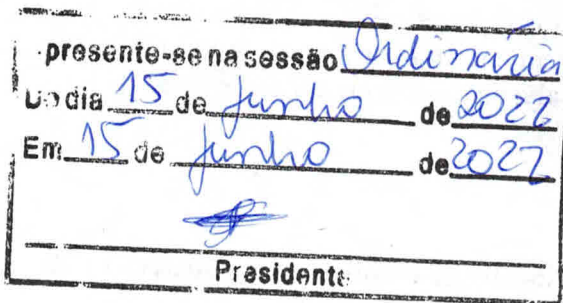 presente-se na sessão Ordinária
Do dia 15 de junho de 2022
Em 15 de junho de 2022
Presidente